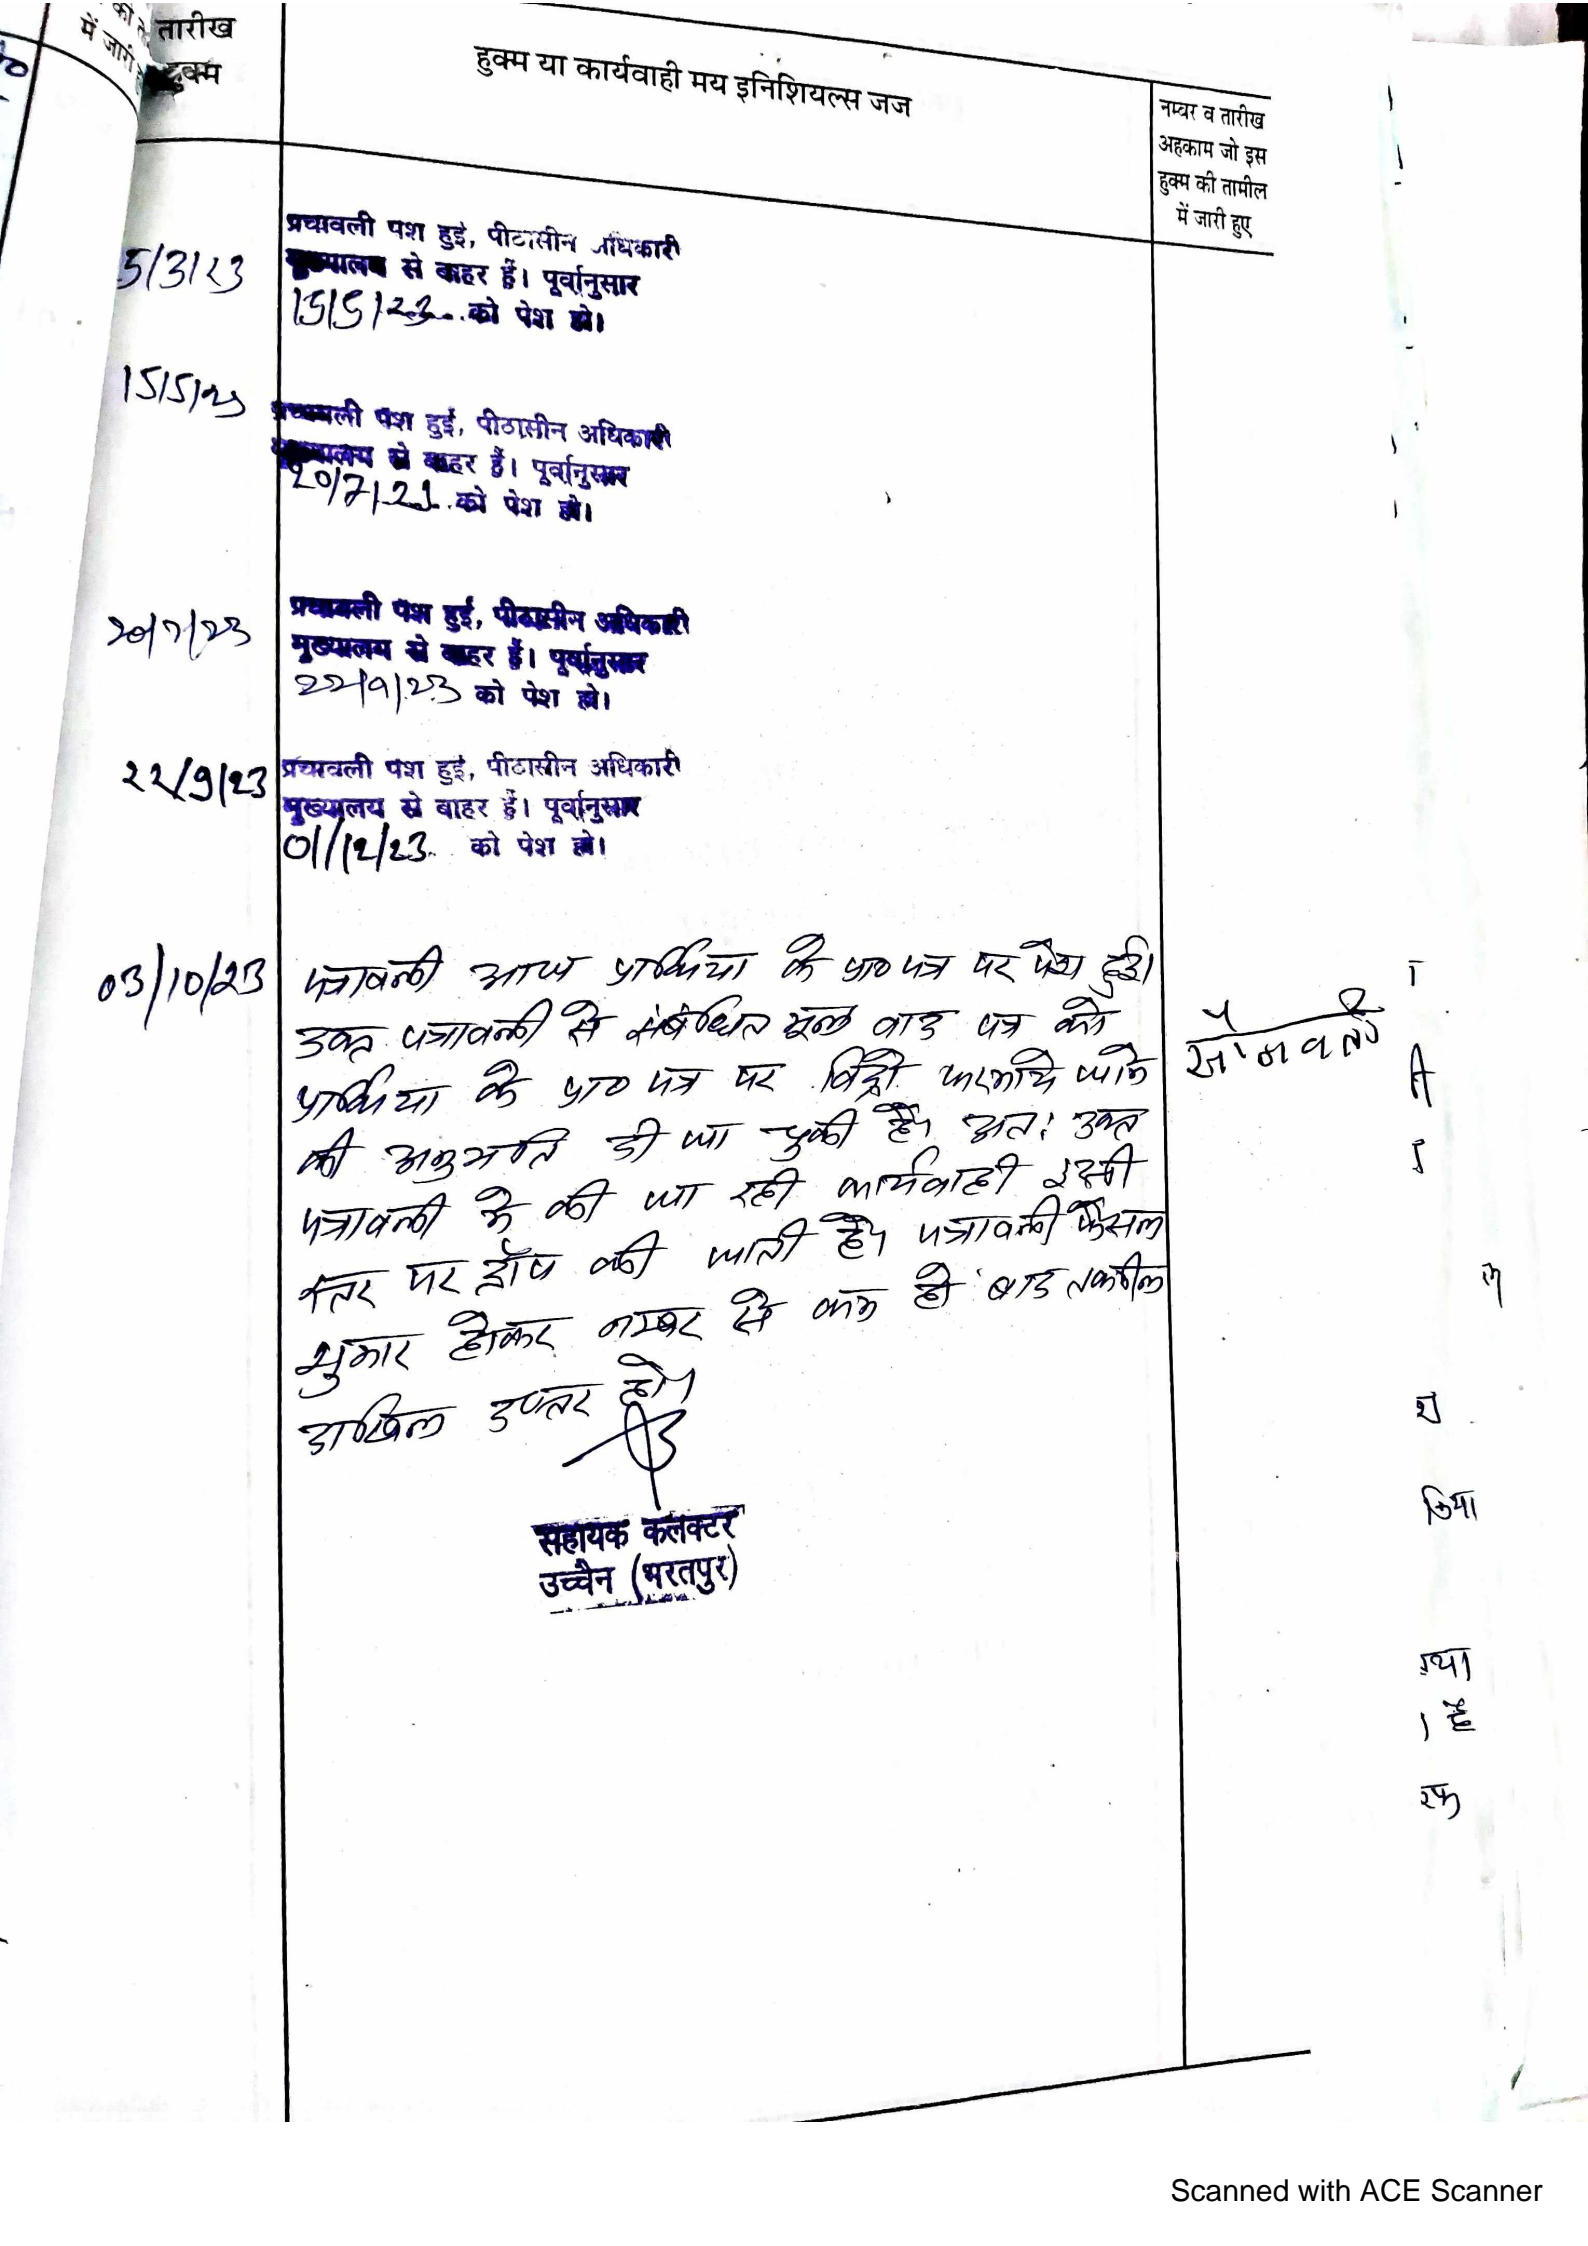 तारीख
हुक्म
में जारी
हुक्म या कार्यवाही मय इनिशियल्स जज
नम्बर व तारीख
अहकाम जो इस
हुक्म की तामील
में जारी हुए
5/3/23
प्रत्रावली पेश हुई, पीठासीन अधिकारी
मुख्यालय से बाहर हैं। पूर्वानुसार
15/5/23 को पेश हो।
15/5/23
प्रत्रावली पेश हुई, पीठासीन अधिकारी
मुख्यालय से बाहर हैं। पूर्वानुसार
20/7/23 को पेश हो।
20/7/23
प्रत्रावली पेश हुई, पीठासीन अधिकारी
मुख्यालय से बाहर हैं। पूर्वानुसार
22/9/23 को पेश हो।
22/9/23
प्रत्रावली पेश हुई, पीठासीन अधिकारी
मुख्यालय से बाहर हैं। पूर्वानुसार
01/12/23 को पेश हो।
03/10/23
पत्रावली आज प्रार्थिया के प्रा० पत्र पर पेश हुई।
उक्त पत्रावली से संबंधित मूल वाद पत्र को
प्रार्थिया के प्रा० पत्र पर विड्रो फरमाये जाने
की अनुमति दी जा चुकी है। अतः उक्त
पत्रावली में की जा रही कार्यवाही इसी
स्तर पर ड्रॉप की जाती है। पत्रावली फैसल
शुमार होकर नम्बर से कम हो बाद तकमील
दाखिल दफ्तर हो।
सोमवती
सहायक कलक्टर
उच्चैन (भरतपुर)
Scanned with ACE Scanner